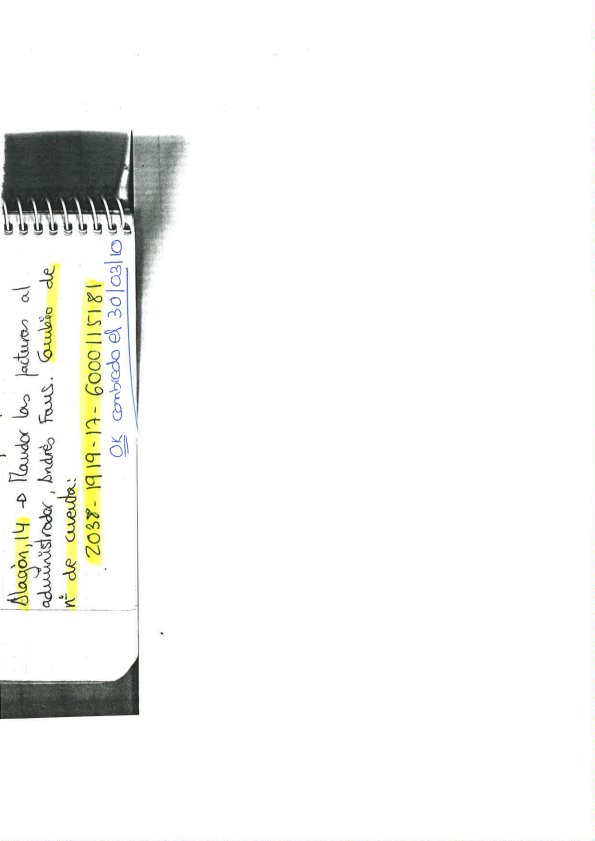 Alagón, 14 → Mandar las facturas al
administrador, Andrés Faus. Cambio de
nº de cuenta:
2038-1919-17-6000115181
OK cambiado el 30/03/10